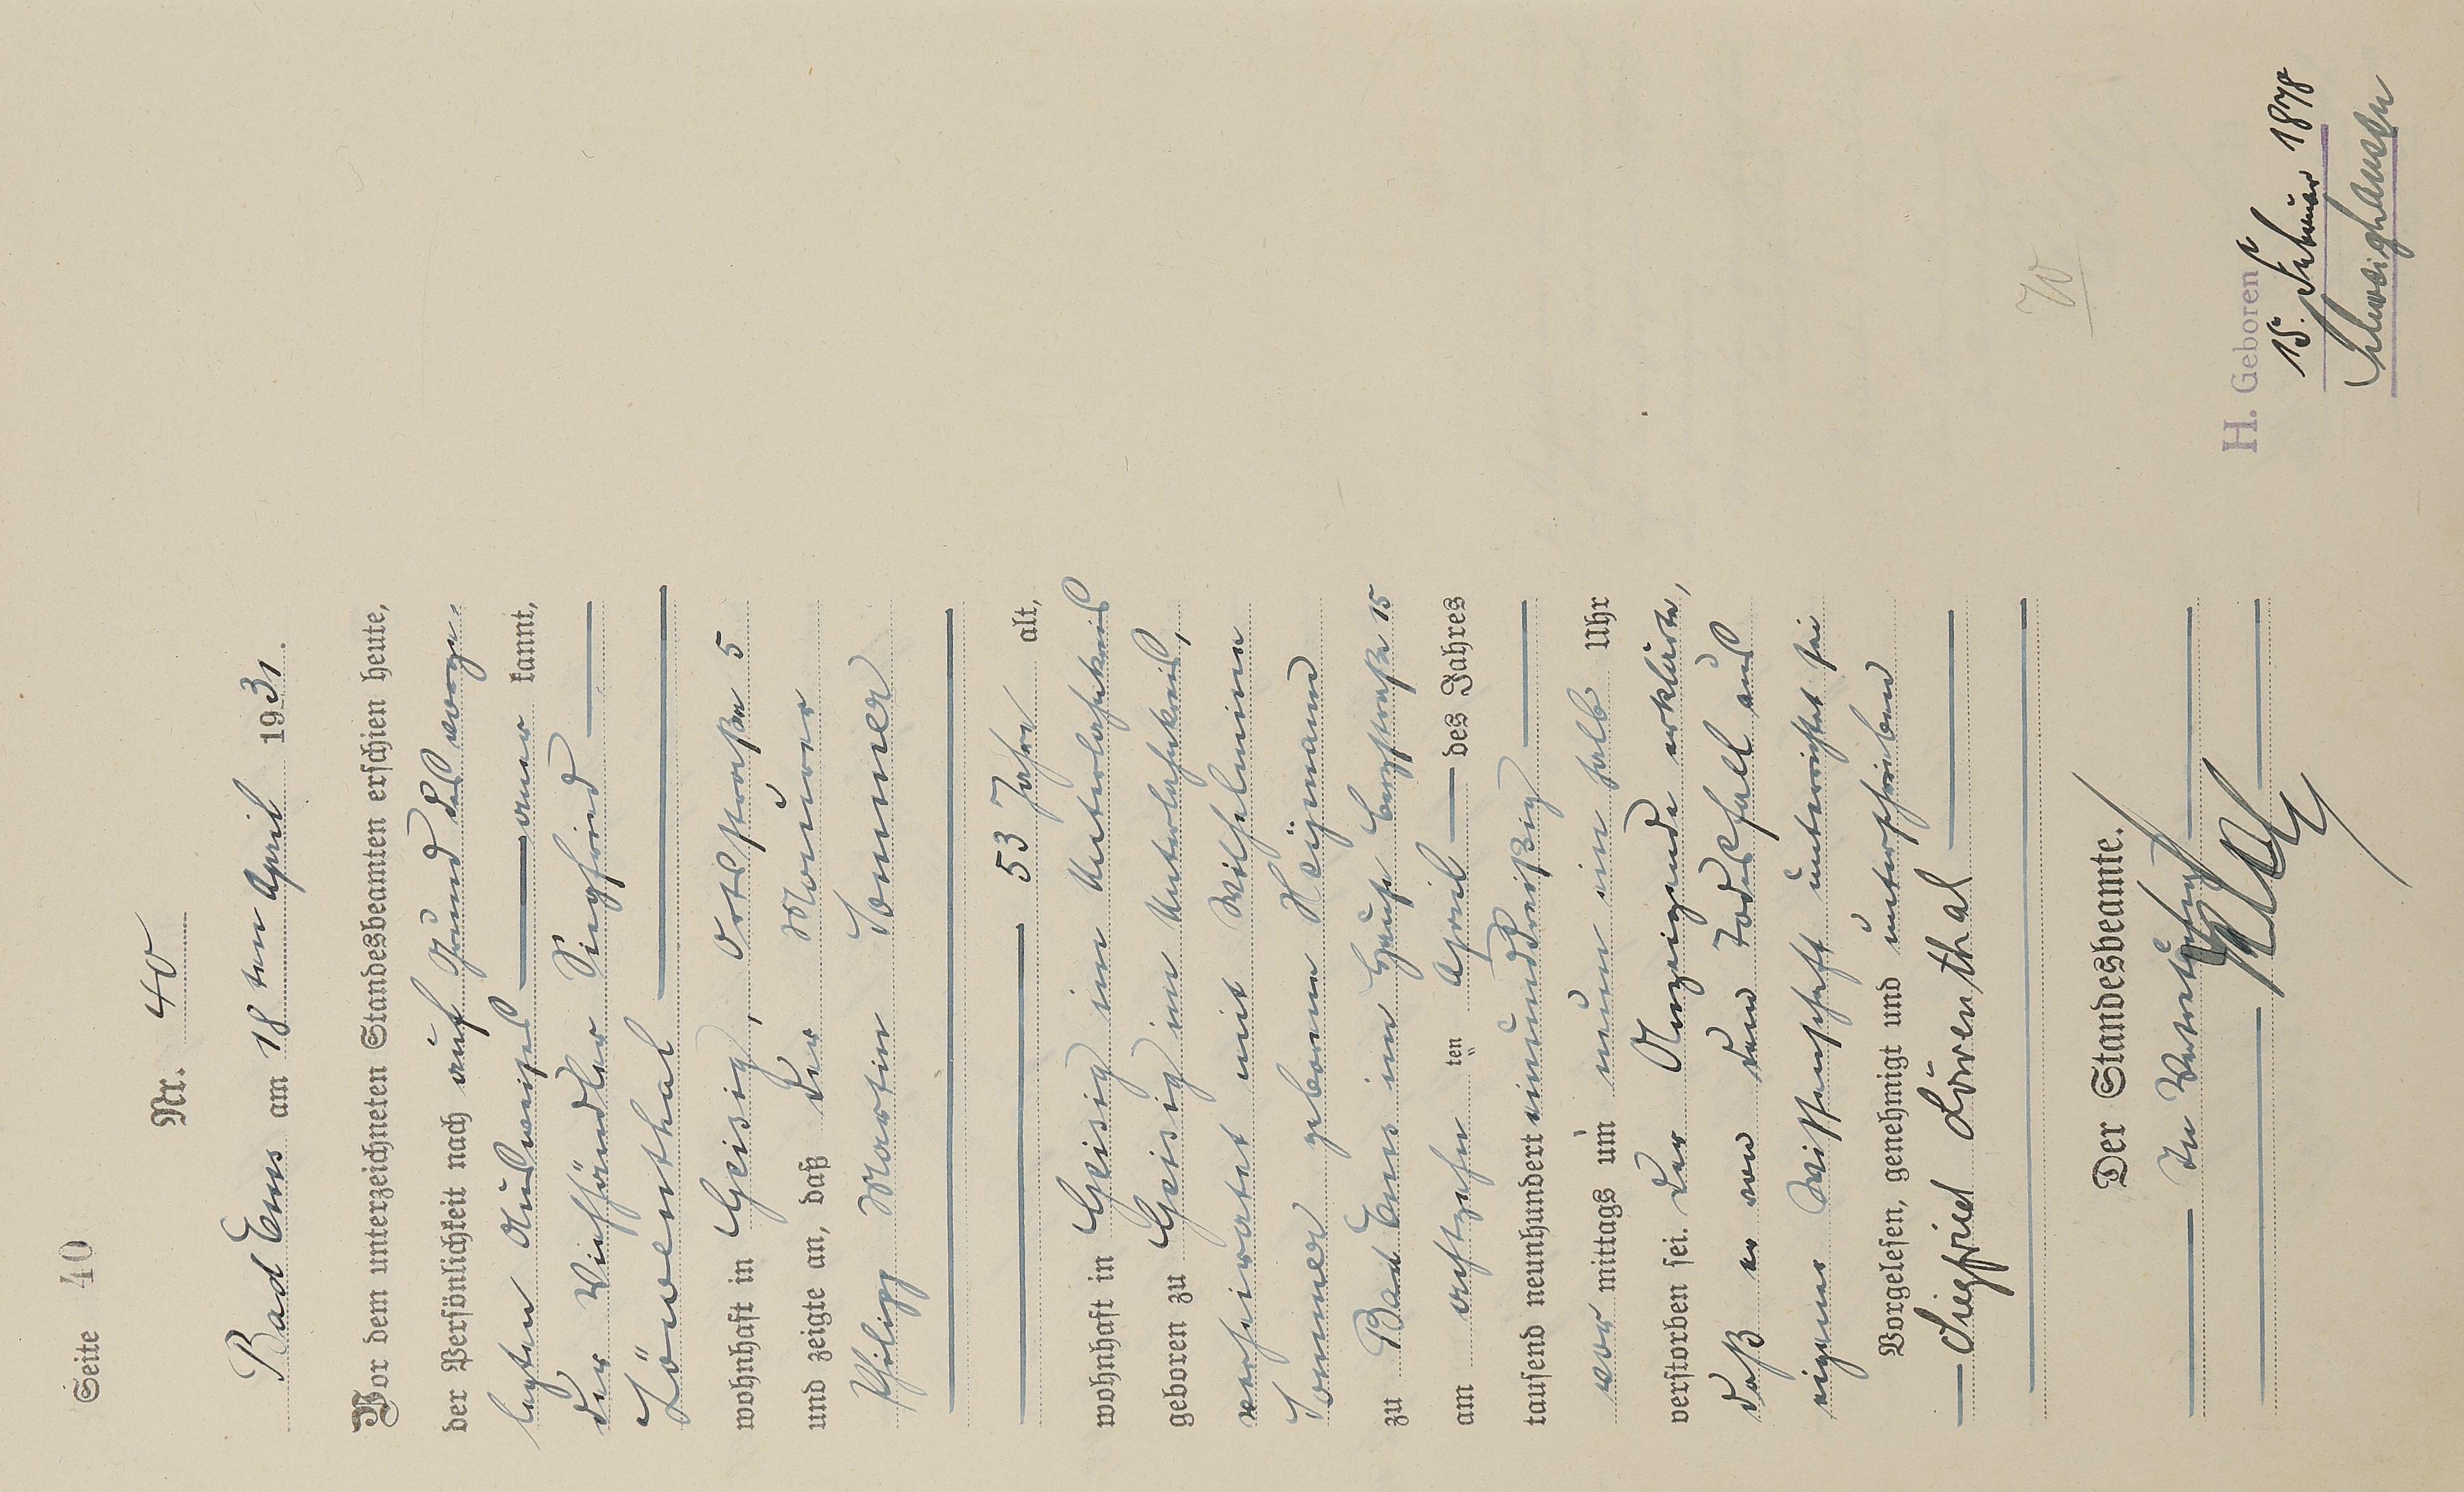 Seite 40
Nr. 40
Bad Ems am 18 ten April 1931.
Vor dem unterzeichneten Standesbeamten erschien heute,
der Persönlichkeit nach auf Grund des vorge-
legten Ausweises aner kannt,
der Viehhändler Siegfried
Löwenthal
wohnhaft in Geisig, Ortsstraße 5
und zeigte an, daß der Maurer
Philipp Martin Sommer
53 Jahre alt,
wohnhaft in Geisig im Unterlahnkreis
geboren zu Geisig im Unterlahnkreis,
verheiratet mit Wilhelmine
Sommer geborene Heymann
zu Bad Ems im Hause 15
am achtzehn ten April des Jahres
tausend neunhundert einunddreißig
vor mittags um neun ein halb Uhr
verstorben sei. Der Anzeigende erklärte,
daß er von dem Todesfall aus
eigener Wissenschaft unterrichtet sei
Vorgelesen, genehmigt und unterschrieben
Siegfried Löwenthal
Der Standesbeamte.
In Vertretung
H. Geboren
15. Februar 1878
Schweighausen